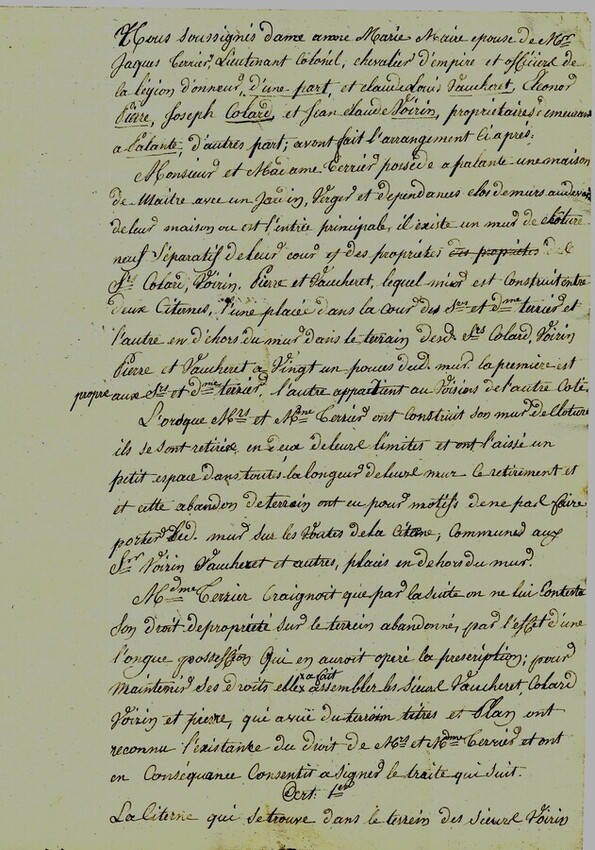 Nous soussignés dame anne Marie Maire epouse de Mr
Jaques Terrier, Lieutenant Colonel, chevalier d'empire et officier de
la légion d'onneur, d'une part, et claude Louis Vaucheret, Eleonor
Pierre, Joseph Colard, et Jean claude Voirin, propriétaires demeurant
a Palante, d'autres part; avont fait l'arrangement Ci après:
Monsieur et Madame Terrier possède a palante une maison
de Maitre avec un Jardin, Verger et dependances clos de murs au devant
de leur maison ou est l'entrée principale, il éxiste un mur de cloture
neuf Séparatif de leur cour et des propriétés des propriétés de
Srs Colard, Voirin, Pierre et Vaucheret, lequel mur est construit entre
deux Citernes, l'une placée dans la cour des Srs et dme terrier et
l'autre en déhors du mur dans le terrein desd. Srs Colard, Voirin
Pierre et Vaucheret a Vingt un pouces dud. mur. la première est
propre aux Srs et dme terrier, l'autre appartient au Voisins de l'autre Coté.
L'orsque Mrs et Mme Terrier ont construit son mur de Cloture
ils se sont retirés, en deux de leurs limites et ont laissé un
petit espace dans toutes la longeur de leurs mur ce retirement et
et cette abandon de terrein ont eu pour motifs de ne pas faire
porter led. mur sur les Voutes de la Citerne, Communes aux
Srs Voirin Vaucheret et autres, placés en dehors du mur.
Mdme Terrier Craignoit que par la suite on ne lui Conteste
Son droit de propriété sur le terrein abandonné, par l'effet d'une
l'ongue possession Qui en auroit opéré la prescription; pour
Maintenir Ses droits elle a fait assembler les sieurs Vaucheret, Colard
Voirin et pierre, qui a vüe du terrein titres et Plan ont
reconnu l'éxistanke du droit de Mrs et Mdme Terrier et ont
en Conséquance Consentit a signer le traité qui suit.
Art. 1er
La Citerne qui se trouve dans le terrein des sieurs Voirin